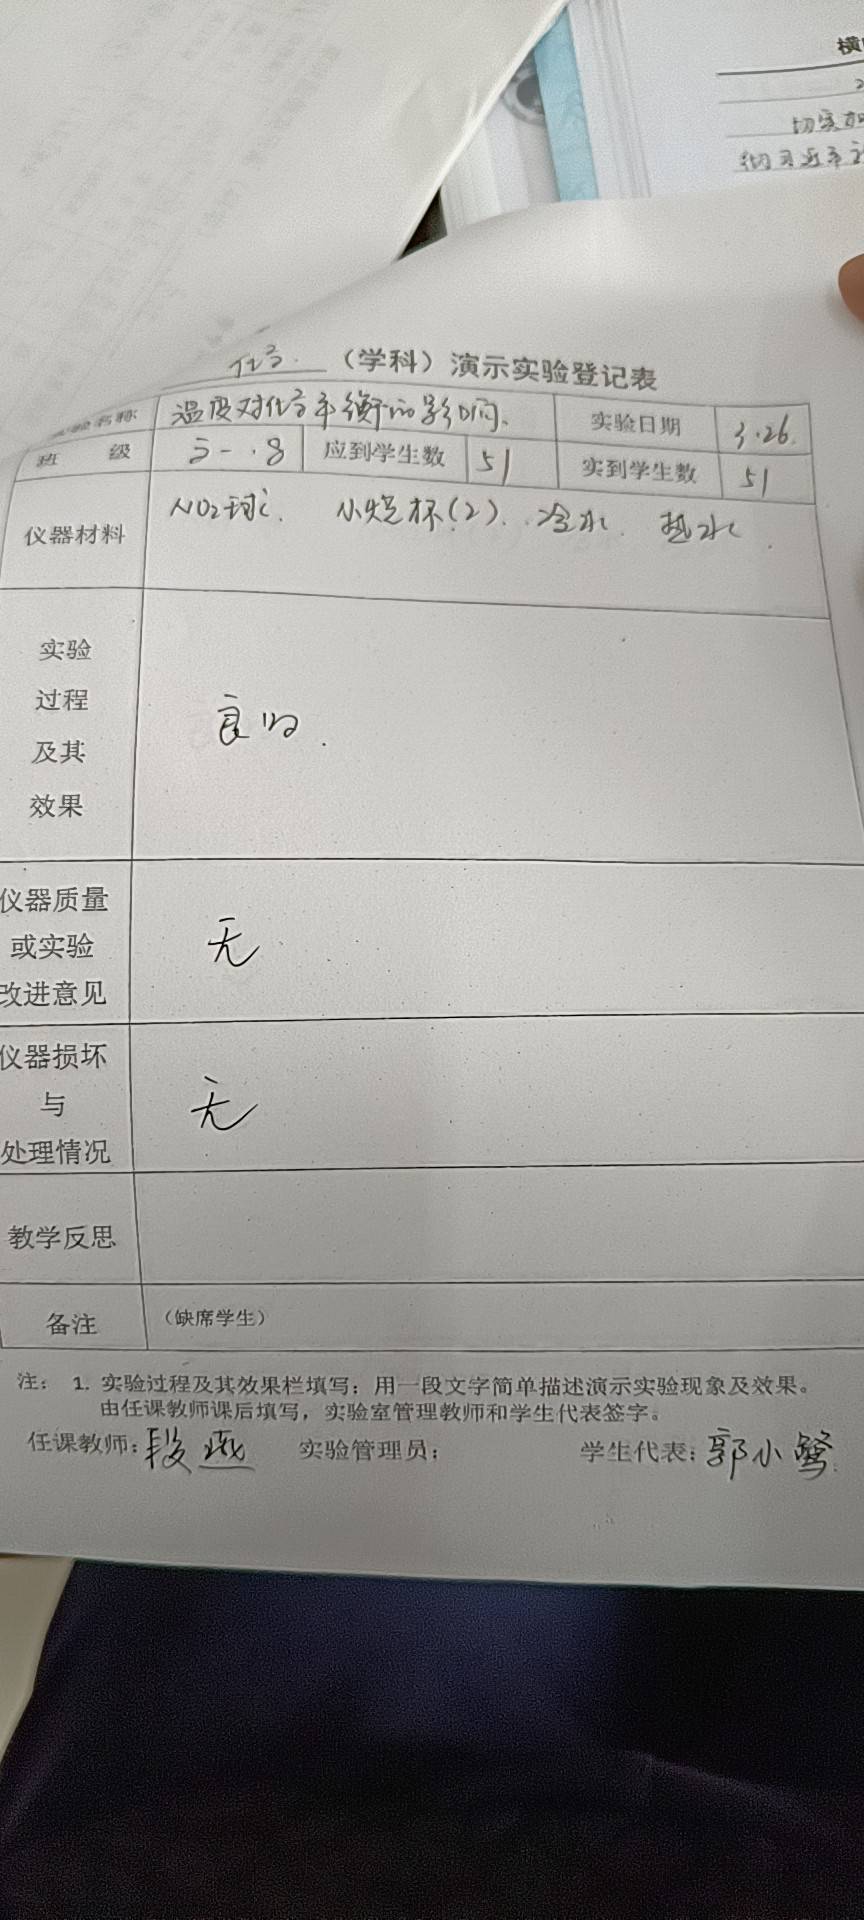 化学 （学科）演示实验登记表
实验名称 温度对化学平衡的影响. 实验日期 3.26.
班 级 高一.8 应到学生数 51 实到学生数 51
仪器材料 NO2球. 小烧杯(2). 冷水. 热水.
实验
过程
及其
效果
良好.
仪器质量
或实验
改进意见
无
仪器损坏
与
处理情况
无
教学反思
备注 （缺席学生）
注： 1. 实验过程及其效果栏填写：用一段文字简单描述演示实验现象及效果。
由任课教师课后填写，实验室管理教师和学生代表签字。
任课教师：段燕 实验管理员： 学生代表：郭小